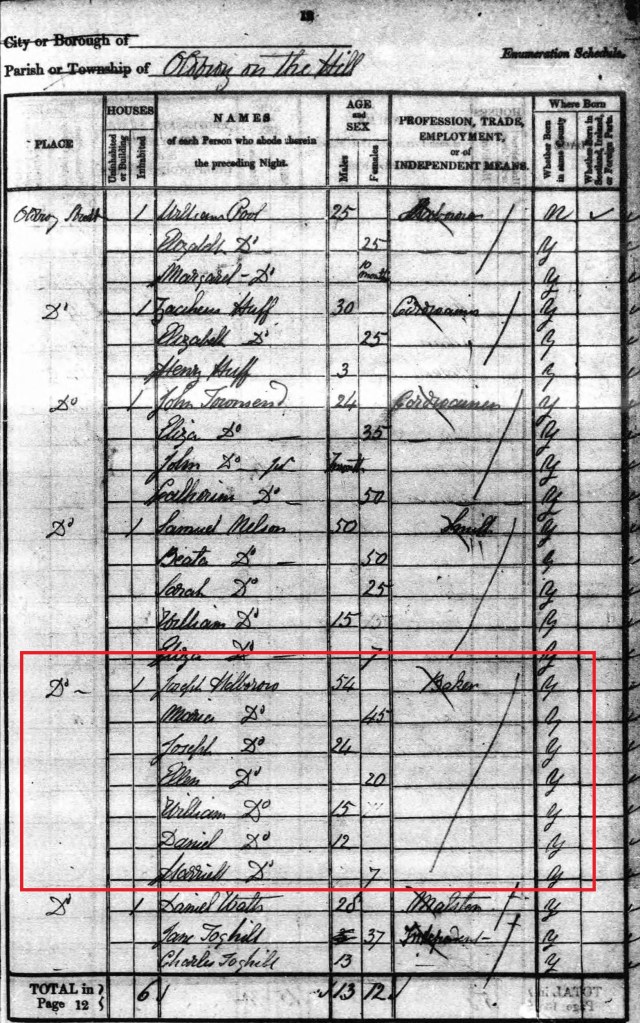 12
City or Borough of
Parish or Township of Oldbury on the Hill
Enumeration Schedule.
PLACE
HOUSES
Uninhabited or Building
Inhabited
NAMES
of each Person who abode therein
the preceding Night.
AGE
and
SEX
Males
Females
PROFESSION, TRADE,
EMPLOYMENT,
or of
INDEPENDENT MEANS.
Where Born
Whether Born in same County
Whether Born in Scotland, Ireland, or Foreign Parts.
1 William Pool 25 N
Elizabeth Do 25 Y
Margaret Do 10 months Y
Do 1 Zacheus Huff 30 Cordwainer Y
Elizabeth Do 25 Y
Henry Huff 3 Y
Do 1 John Townsend 24 Cordwainer Y
Eliza Do 35 Y
John Do months Y
Catherine Do 50 Y
Do 1 Samuel Nelson 50 Smith Y
Beata Do 50 Y
Sarah Do 25 Y
William Do 15 Y
Eliza Do 7 Y
Do 1 Joseph 54 Baker Y
Maria Do 45 Y
Joseph Do 24 Y
Ellen Do 20 Y
William Do 15 Y
Daniel Do 12 Y
Harriett Do 7 Y
Do 1 Daniel Watts 28 Y
Jane Toghill 37 Independent Y
Charles Toghill 13 Y
TOTAL in Page 12 6 13 12